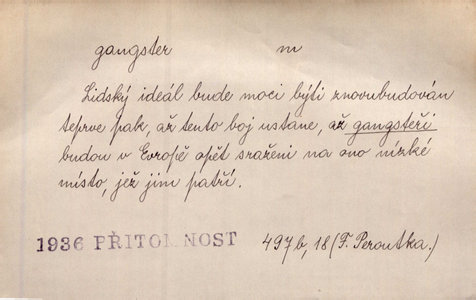 gangster m
Lidský ideál bude moci býti znovubudován
teprve pak, až tento boj ustane, až gangsteři
budou v Evropě opět sraženi na ono nízké
místo, jež jim patří.
1936 PŘITOMNOST 497b, 18 (F. Peroutka.)